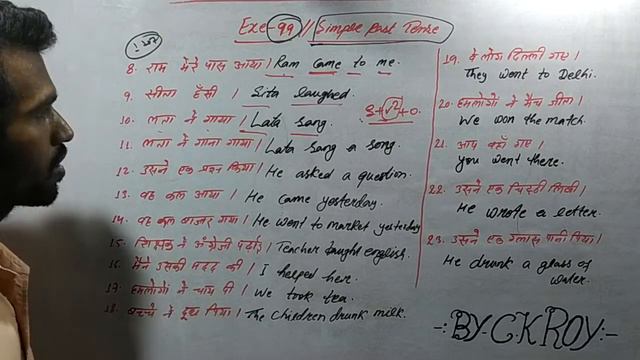 Exe-99 // Simple Past Tense
8. राम मेरे पास आया। Ram came to me.
9. सीता हँसी । Sita laughed.
S+V2+O.
10. लता ने गाया। Lata sang.
11. लता ने गाना गाया। Lata Sang a song.
12. उसने एक प्रश्न किया। He asked a question.
13. वह कल आया। He came yesterday.
14. वह कल बाजार गया। He went to market yesterday
15. शिक्षक ने अंग्रेजी पढ़ाई। Teacher taught english.
16. मैंने उसकी मदद की। I helped her.
17. हमलोगों ने चाय पी। We took tea.
18. बच्चे ने दूध पिया। The children drunk milk.
19. वे लोग दिल्ली गए।
They went to Delhi.
20. हमलोगों ने मैच जीता।
We won the match.
21. आप वहाँ गए।
you went there.
22. उसने एक चिट्ठी लिखी।
He wrote a letter.
23. उसने एक गलास पानी पिया।
He drunk a glass of
water.
-:BY-C.K ROY:-